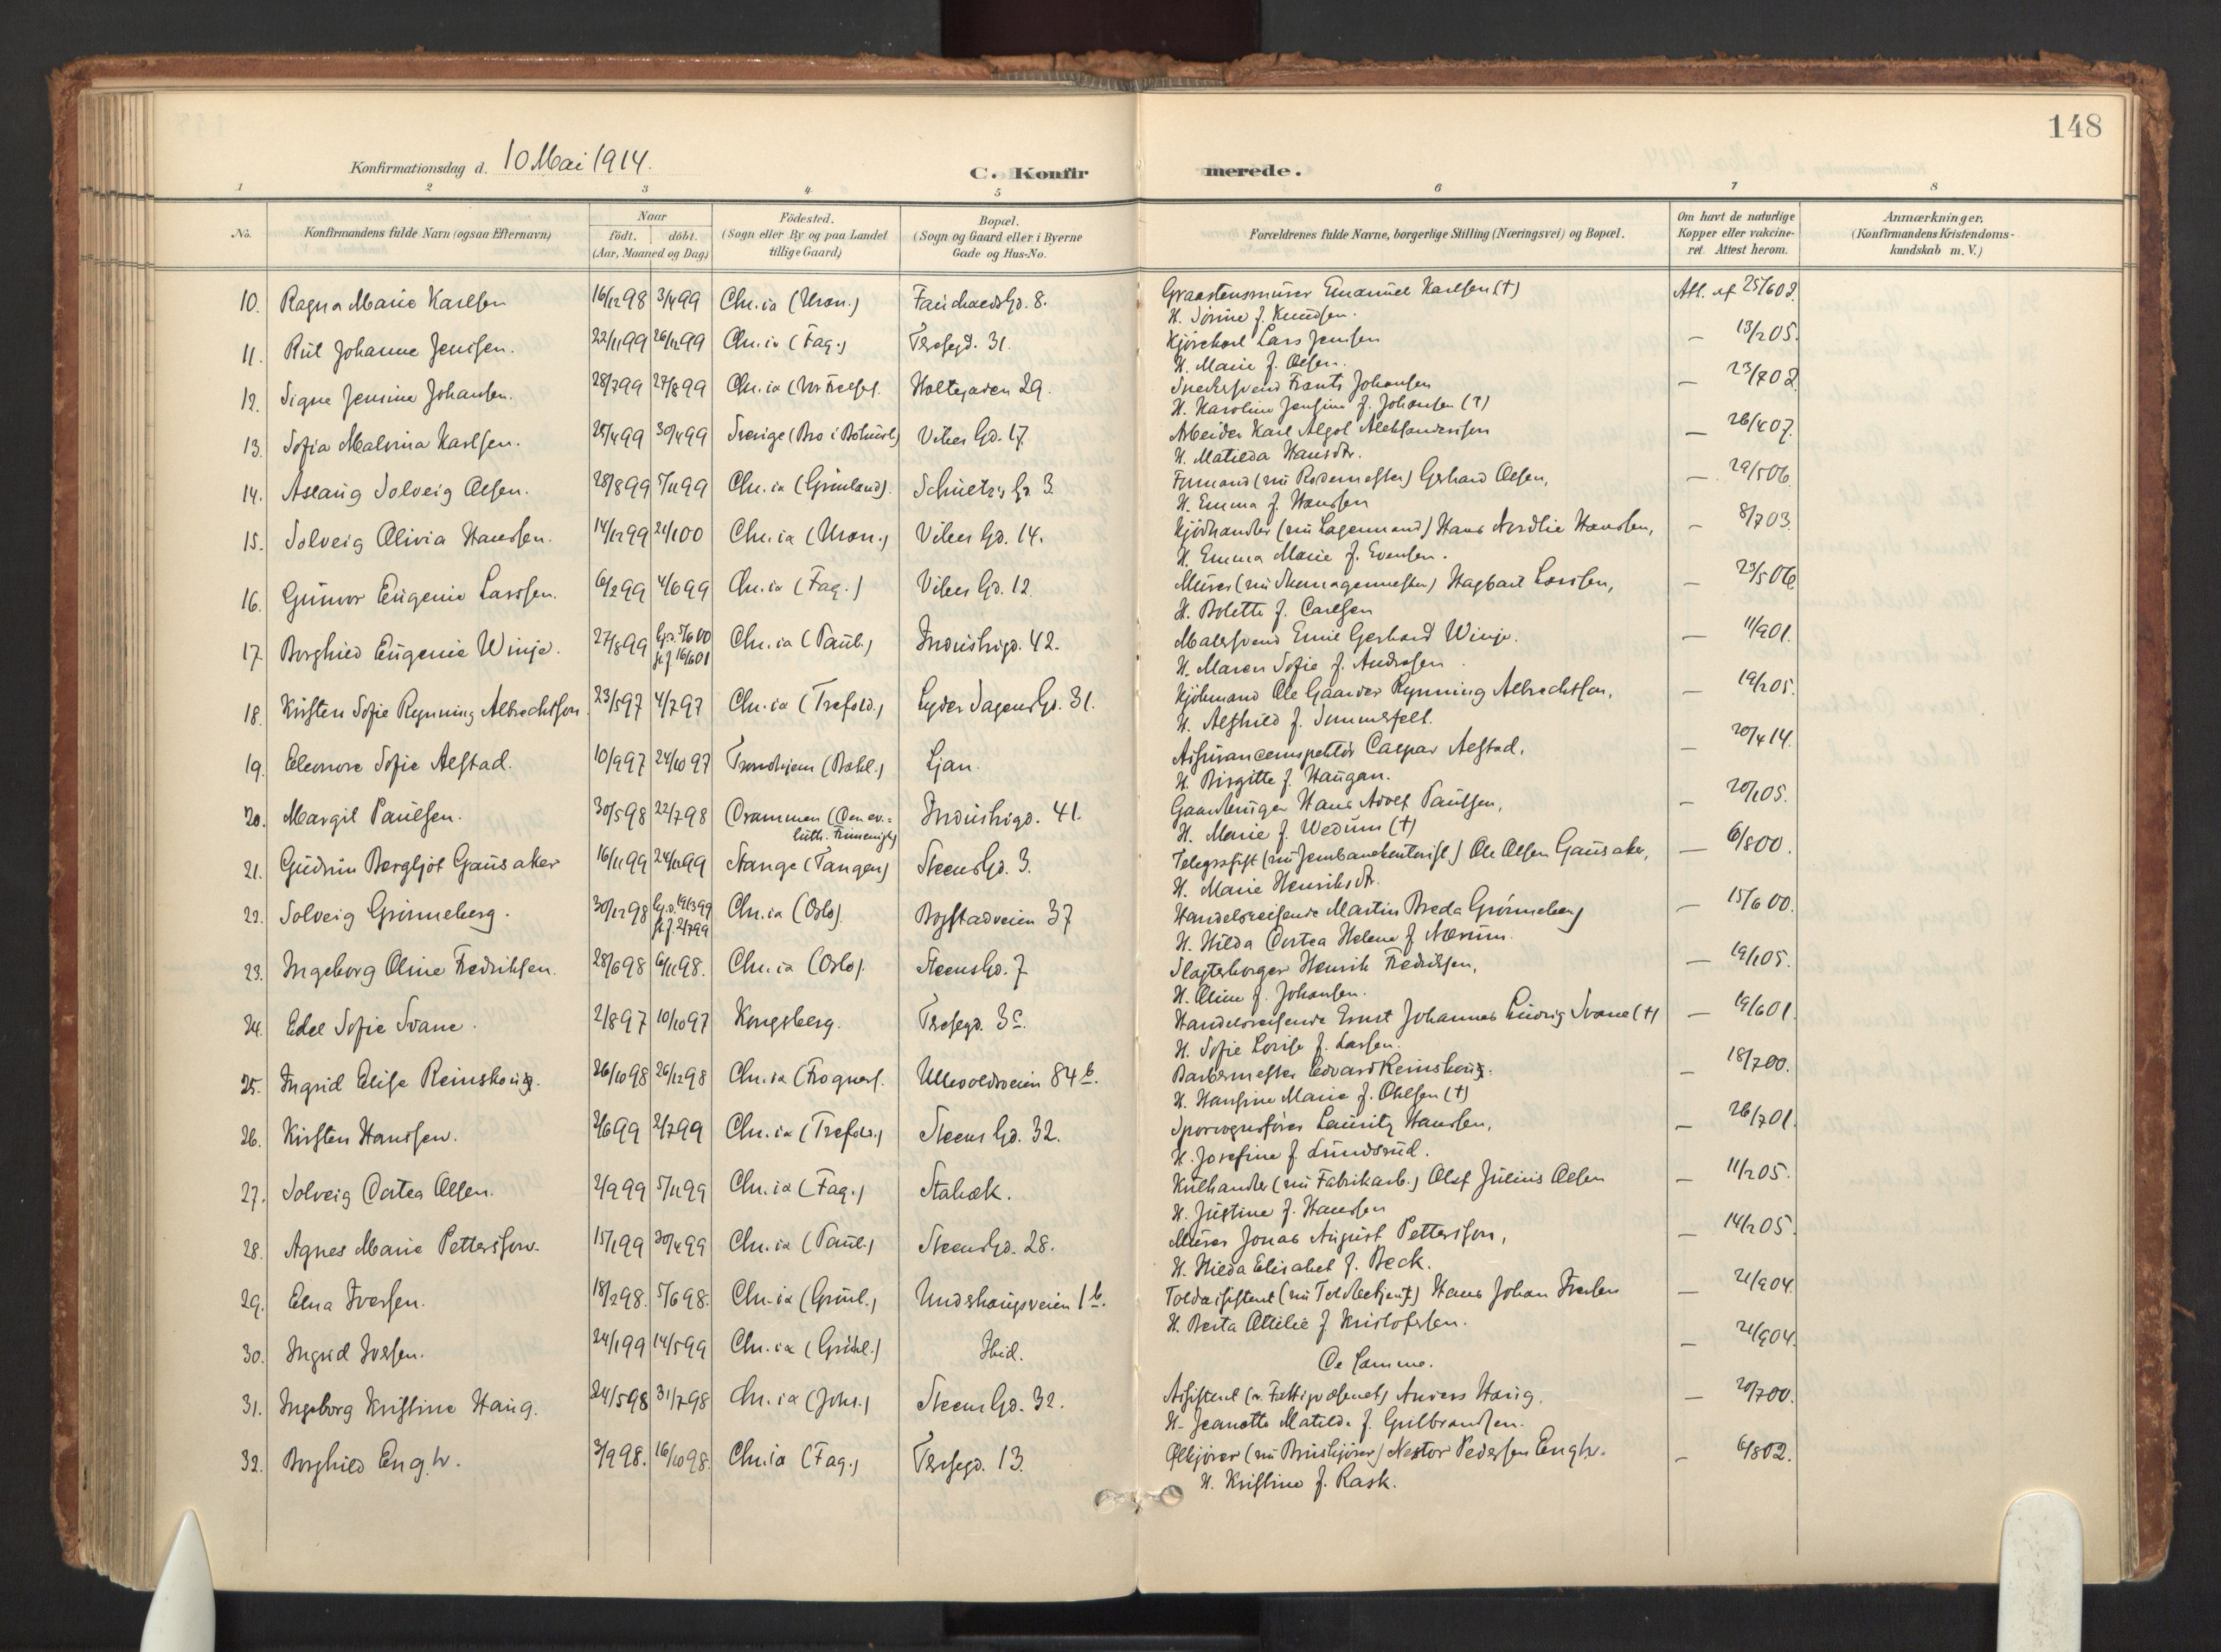 148
Konfirmationsdag d. 10 Mai 1914.
C. Konfir merede.
1 2 3 4 5 6 7 8
No.
Konfirmandens fulde Navn (ogsaa Efternavn)
Naar
födt. döbt.
(Aar, Maaned og Dag)
Födested.
(Sogn eller By og paa Landet
tillige Gaard)
Bopæl.
(Sogn og Gaard eller i Byerne
Gade og Hus-No.
Forældrenes fulde Navne, borgerlige Stilling (Næringsvei) og Bopæl.
Om havt de naturlige
Kopper eller vakcine-
ret. Attest herom.
Anmærkninger.
(Konfirmandens Kristendoms-
kundskab m. V.)
10. Ragna Marie Karlsen 16/12 98 3/4 99 Chr.ia (Uran.) Fauchalds Gd. 8. Graastensmurer Emanuel Karlsen (†) Att. af 25/6 02.
H. Sörine f. Knudsen.
11. Rut Johanne Jensen. 22/11 99 26/12 99 Chr.ia (Fag.) Theresegd. 31. Kjörekarl Lars Jensen — 13/2 05.
H. Marie f. Olsen.
12. Signe Jensine Johansen. 28/7 99 27/8 99 Chr.ia (Vor Frelsers. Holtegaden 29. Snedkersvend Frants Johansen — 23/7 02.
H. Karoline Jensine f. Johansen (†)
13. Sofia Malvina Karlsen. 25/4 99 30/4 99 Sverige (Bro i Bohusl.) Vibes Gd. 17. Arbeider Karl Algot Aleksandersson — 26/4 07.
H. Matilda Hansdtr.
14. Aslaug Solveig Olsen. 28/8 99 5/11 99 Chr.ia (Grünland). Schultz's Gd. 3. Formand (nu Rodemester) Gerhard Olsen, — 29/5 06.
H. Emma f. Hanssen
15. Solveig Olivia Hanssen. 14/12 99 21/1 00 Chr.ia (Uran.) Vibes Gd. 14. Kjödhandler (nu Lagermand) Hans Nordlie Hanssen, — 8/7 03.
H. Emma Marie f. Evensen.
16. Gunvor Eugenie Larssen. 6/2 99 4/6 99 Chr.ia (Fag.) Vibes Gd. 12. Murer (nu Murmagermester) Hagbart Larssen, — 23/5 06
H. Bolette f. Carlsen
17. Borghild Eugenie Winje. 27/8 99 hj.d. 5/6 00 st.f. 16/6 01 Chr.ia (Paul.) Industrigd. 42. Malersvend Emil Gerhard Winje. — 11/9 01.
H. Maren Sofie f. Andersen.
18. Kirsten Sofie Rynning Albrechtson. 23/5 97 4/7 97 Chr.ia (Trefold.) Lyder Sagens Gd. 31. Kjöbmand Ole Gaarder Rynning Albrechtson, — 19/2 05.
H. Alfhild f. Sommerfelt.
19. Eleonore Sofie Alstad. 10/9 97 24/10 97 Trondhjem (Bakl.) Ljan. Assuranceinspektör Caspar Alstad, — 20/4 14.
H. Birgitte f. Haugan.
20. Margit Paulsen. 30/5 98 22/7 98 Drammen (Den ev.-
luth. Frimenigh.) Industrigd. 41. Gaardbruger Hans Adolf Paulsen, — 20/1 05.
H. Marie f. Wedum (†)
21. Gudrun Bergljot Gausaker 16/11 99 24/12 99 Stange (Tangen) Steens Gd. 3. Telegrafist (nu Jernbanekontorist) Ole Olsen Gausaker, — 6/8 00.
H. Marie Henriksdtr.
22. Solveig Grönneberg. 30/12 98 hj.d. 19/3 99 st.f. 2/7 99 Chr.ia (Oslo). Bogstadveien 37 Handelsreisende Martin Breda Grönneberg — 15/6 00.
H. Hilda Dortea Helene f. Nærum.
23. Ingeborg Oline Fredriksen. 28/6 98 6/11 98. Chr.ia (Oslo). Steens Gd. 7 Slagterborger Henrik Fredriksen, — 19/1 05.
H. Oline f. Johansen.
24. Edel Sofie Svane. 2/8 97 10/10 97 Kongsberg. Theresegd. 3c. Handelsreisende Ernst Johannes Ludvig Svane (†) — 19/6 01.
H. Sofie Lovise f. Larsen.
25. Ingrid Elise Reinskoug. 26/10 98 26/12 98 Chr.ia (Frogners. Ullevoldsveien 84 b. Barbermester Edvard Reinskoug. — 18/7 00.
H. Hansine Marie f. Ohlsen (†)
26. Kirsten Hanssen. 2/6 99 2/7 99 Chr.ia (Trefold.) Steens Gd. 32. Sporvognsförer Lauritz Hanssen, — 26/7 01.
H. Josefine f. Lundsrud.
27. Solveig Dortea Olsen. 2/9 99 5/11 99 Chr.ia (Fag.) Stabæk. Kulhandler (nu Fabrikarb.) Olaf Julius Olsen — 11/2 05.
H. Justine f. Hanssen
28. Agnes Marie Petterson. 15/1 99 30/4 99 Chr.ia (Paul.) Steens Gd. 28. Murer Jonas August Petterson, — 14/2 05.
H. Hilda Elisabet f. Beck.
29. Elna Iversen. 18/2 98. 5/6 98. Chr.ia (Grünl.) Undshaugsveien 1 b. Toldassistent (nu Toldbetjent) Hans Johan Iversen — 21/9 04.
H. Berta Otilie f. Kristofersen.
30. Ingrid Iversen. 24/1 99 14/5 99 Chr.ia (Grünl.) Ibid. De samme. — 21/9 04.
31. Ingeborg Kristine Haug. 24/5 98 31/7 98 Chr.ia (Johs.) Steens Gd. 32. Assistent (v. Fattigvæsenet) Anders Haug. — 20/7 00.
H. Jeanette Matilde f. Gulbrandsen.
32. Borghild Engh. 3/9 98. 16/10 98. Chr.ia (Fag.) Theresegd. 13. Ölkjörer (nu Bruskjörer) Nestor Pedersen Engh. — 6/8 02.
H. Kristine f. Rask.